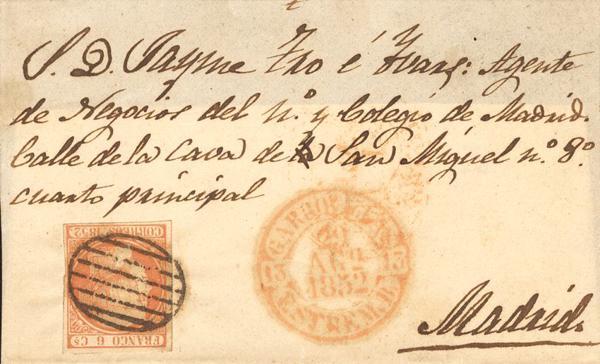 S. D. Jayme Tro é Yvarz: Agente
de Negocios del n.º y Colegio de Madrid.
Calle de la Cava de San Miguel n.º 8.º
cuarto principal
CORREOS 1852
FRANCO 6 Cs
GARROBILLAS
13 13
1852
ESTREM.B.
Madrid.